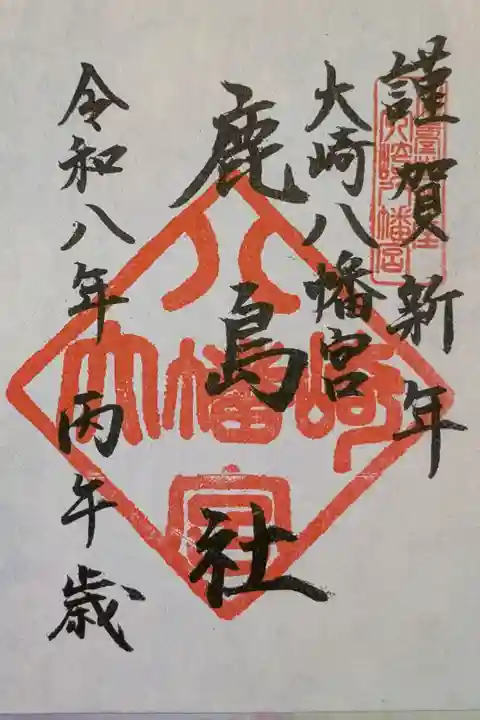 謹賀新年
大崎八幡宮
鹿島社
令和八年 丙午歳
八
大幡崎
宮